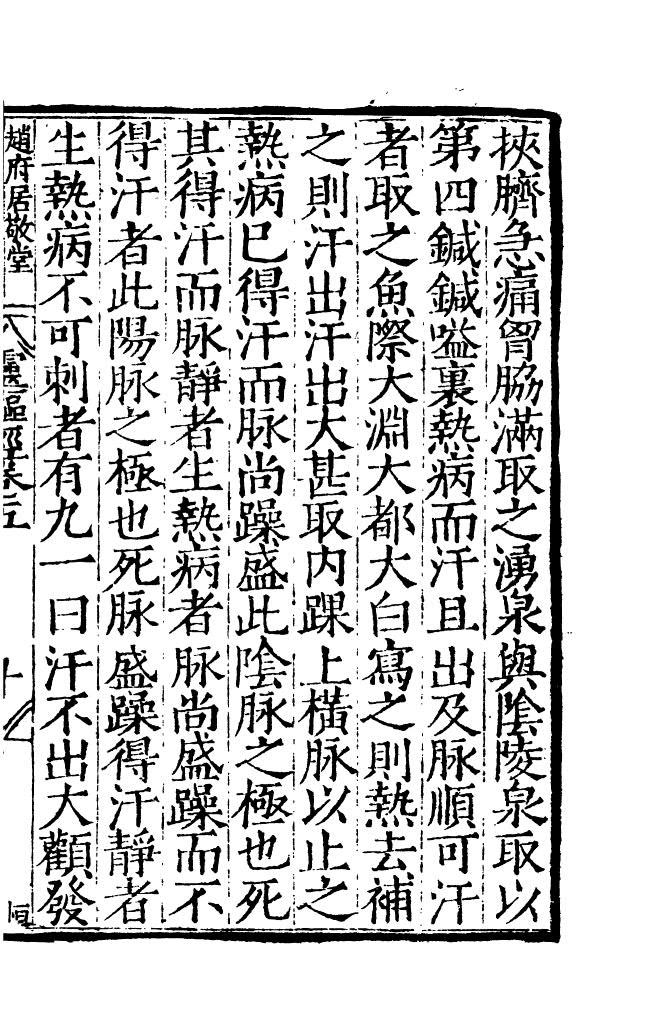 挾臍急痛胷脇滿取之湧泉與陰陵泉取以
第四鍼鍼嗌裏熱病而汗且出及脉順可汗
者取之魚際大淵大都大白寫之則熱去補
之則汗出汗出大甚取内踝上橫脉以止之
熱病已得汗而脉尚躁盛此陰脉之極也死
其得汗而脉靜者生熱病者脉尚盛躁而不
得汗者此陽脉之極也死脉盛躁得汗靜者
生熱病不可刺者有九一曰汗不出大顴發
趙府居敬堂
靈樞經卷之五